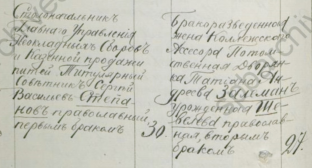 Столоначальникъ
Главнаго Управленія
Неокладныхъ Сборовъ
и Казенной продажи
питей Титулярный
Совѣтникъ Сергій
Васильевъ Степа-
новъ православный
первымъ бракомъ
30
Бракоразведенная
жена Коллежскаго
Ассесора Потом-
ственная Дворян-
ка Матрона Ан-
дреева Займанъ
урожденная
православ-
ная, вторымъ
бракомъ
27.